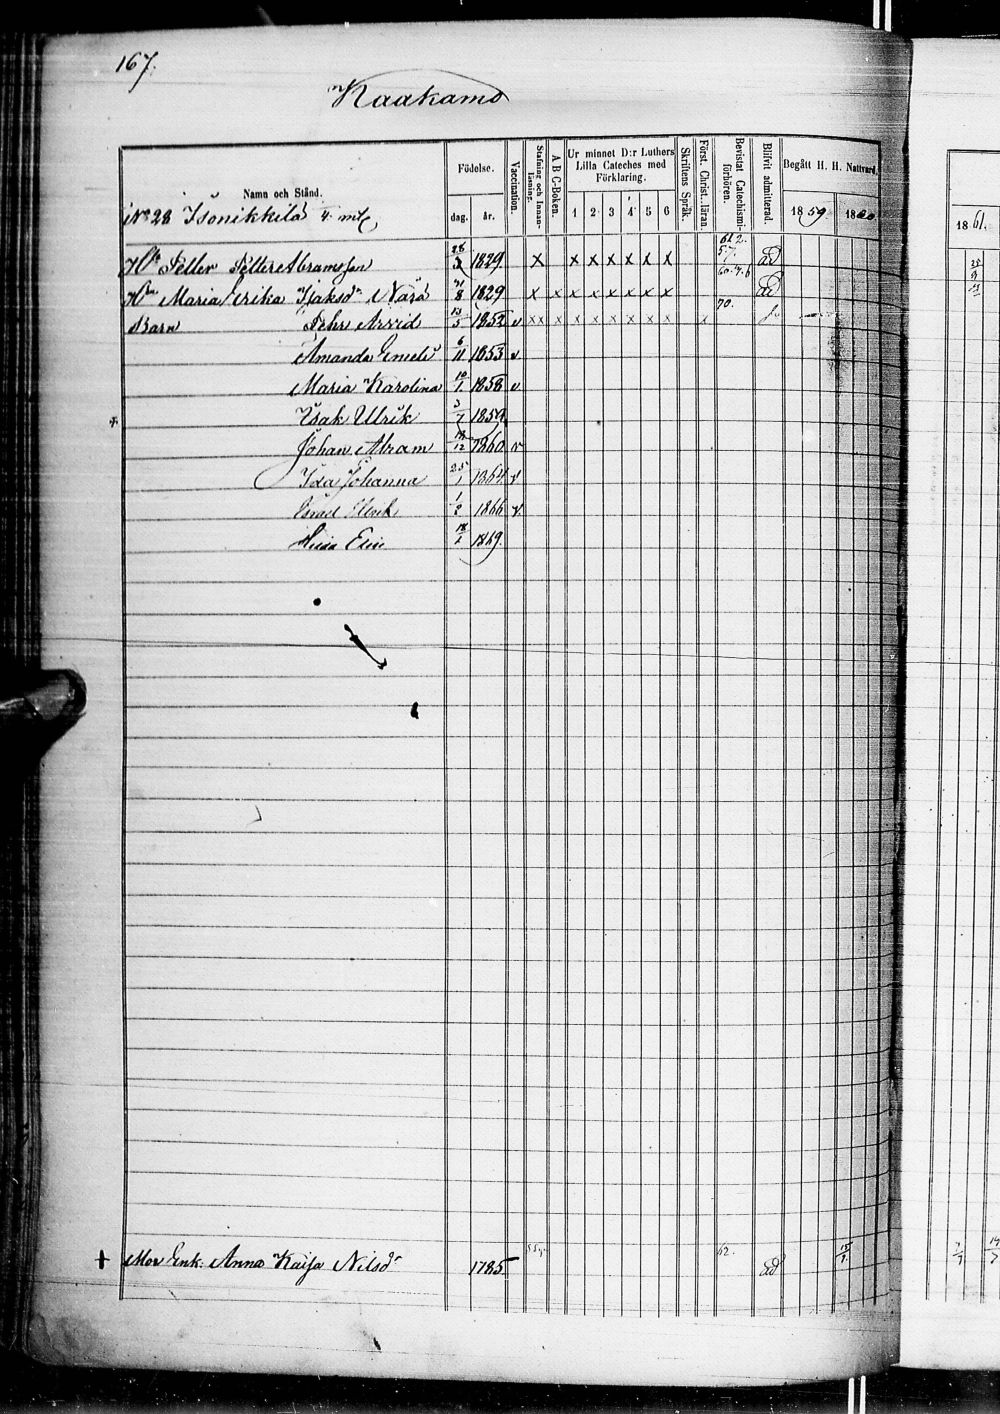 167.
Kaakamo
Namn och Stånd. Födelse. Vaccination. Stafning och Innan-läsning. A B C-Boken. Ur minnet D:r Luthers Lilla Cateches med Förklaring. Skriftens Språk. Först. Christ.-läran. Bevistat Catechismi-förhören. Blifvit admitterad. Begått H. H. Nattvard.
dag. år. 1 2 3 4 5 6 1859. 1860 1861.
No 28 Isonikkilä
612.
Petter Petter Abramsson 28/3 1829 x x x x x x x 57. ad
60.
Maria Erika Isaksdr Nara 21/8 1829 x x x x x x x x ad
70.
Barn Pehr Arvid 13/5 1852 v x x x x x x x x x x
Amanda Emeli 6/11 1853 v
Maria Karolina 10/1 1858 v
+ Isak Ulrik 3/7 1859
Johan Abram 18/12 1860 v
Ida Johanna 25/1 1864 v
Israel Ulrik 1/2 1866 v.
Elin 18/1 1869.
+ Mor Enk. Anna Kaisa Nilsdr 1785 62. ad 15/7